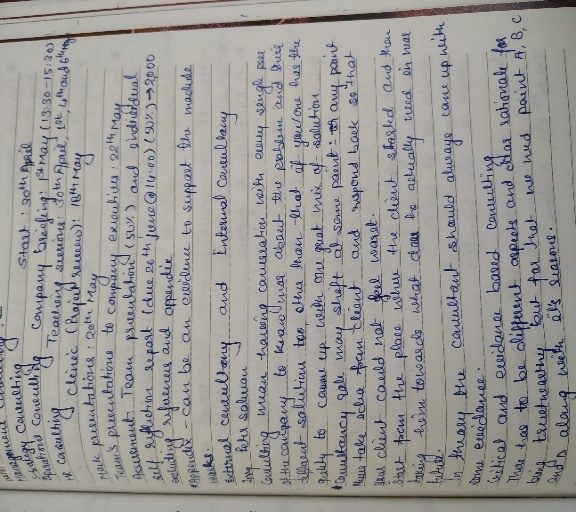 Management Consulting :-
Management Consulting Start : 30th April
Strategy Consulting Company briefing : 1st May (13:30-15:30)
Operations Consulting Teaching sessions : 30th April, 1st, 4th and 6th May
HR Consulting Clinic (Project reviews) : 18th May
Mock presentations : 20th May
Team's presentations to company executives : 22th May
Assessment: Team presentation (50%) and individual
self reflection report (due 26th June @ 14:00) (50%) → 2000
excluding references and appendix
*Appendix - can be an evidence to support the module
External consultancy and Internal Consultancy
Consulting mean having conversation with every single person
of the company to know more about the problem and
different solutions too other than that of you/one has the
ability to come up with one great mix of solution
* Consultancy role may shift at some point - at any point
from client and respond back so that
your client could not feel
start from the place where the client started and then
bring them towards what does he actually need in near
future.
In theory the consultant should always come up with
some evidence.
Critical and evidence based consulting
There has to be different aspects and also rationale for
being trustworthy but for that we need point A, B, C
and D along with its reasons.